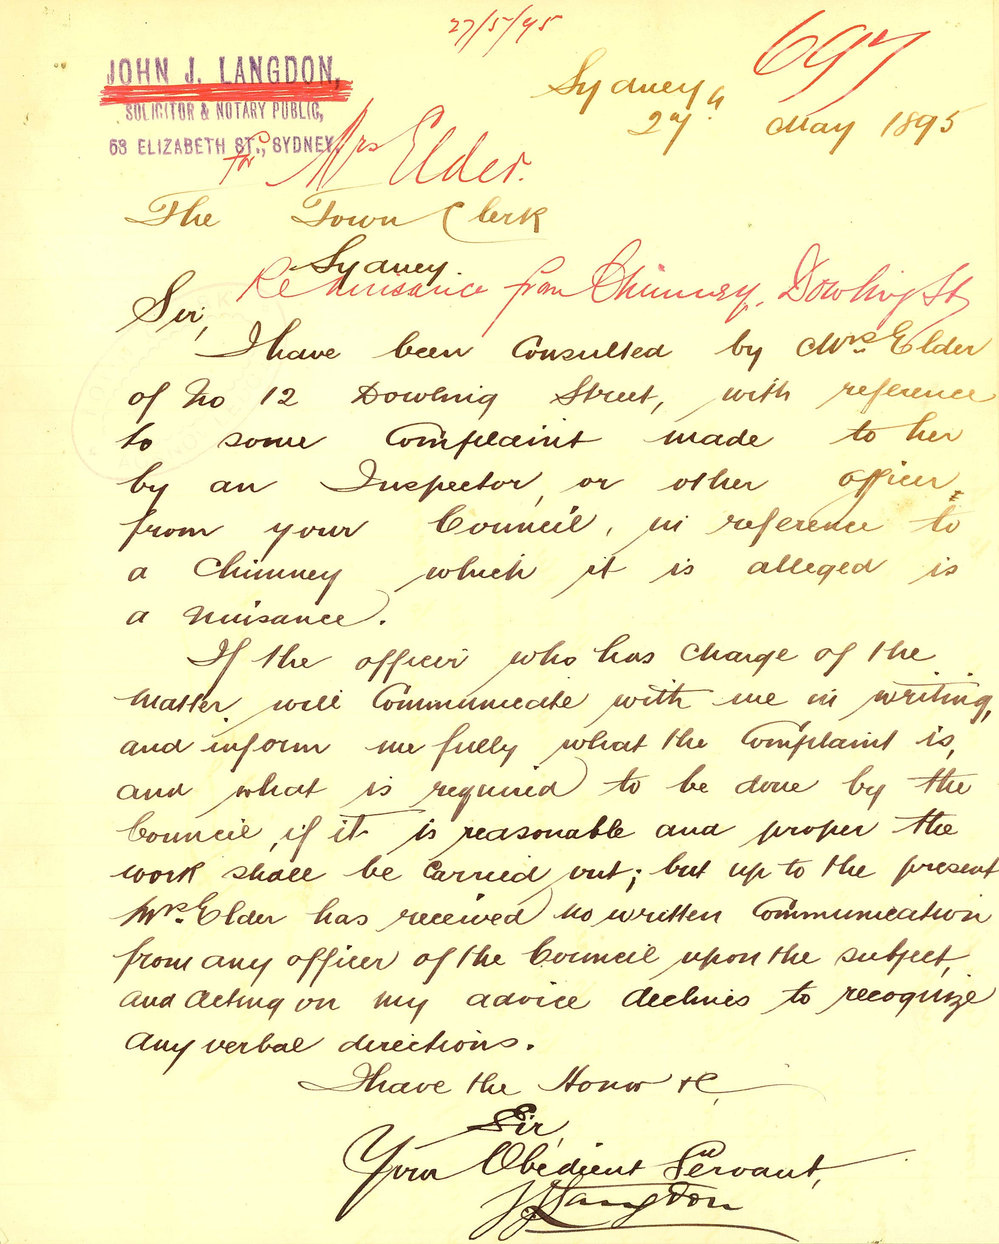 27/5/95
697
JOHN J. LANGDON,
SOLICITOR & NOTARY PUBLIC,
63 ELIZABETH ST., SYDNEY.
Sydney
27th May 1895
for Mrs Elder.
The Town Clerk
Sydney.
Re nuisance from Chimney, Dowling St
Sir,
I have been Consulted by Mrs Elder
of No 12 Dowling Street, with reference
to some Complaint made to her
by an Inspector, or other officer,
from your Council, in reference to
a Chimney which it is alleged is
a nuisance.
If the officer who has charge of the
matter will Communicate with me in writing,
and inform me fully what the Complaint is,
and what is required to be done by the
Council, if it is reasonable and proper the
work shall be Carried out; but up to the present
Mrs Elder has received no written Communication
from any officer of the Council upon the subject,
and acting on my advice declines to recognize
any verbal directions.
I have the Honor &c,
Sir,
Your Obedient Servant,
JJLangdon